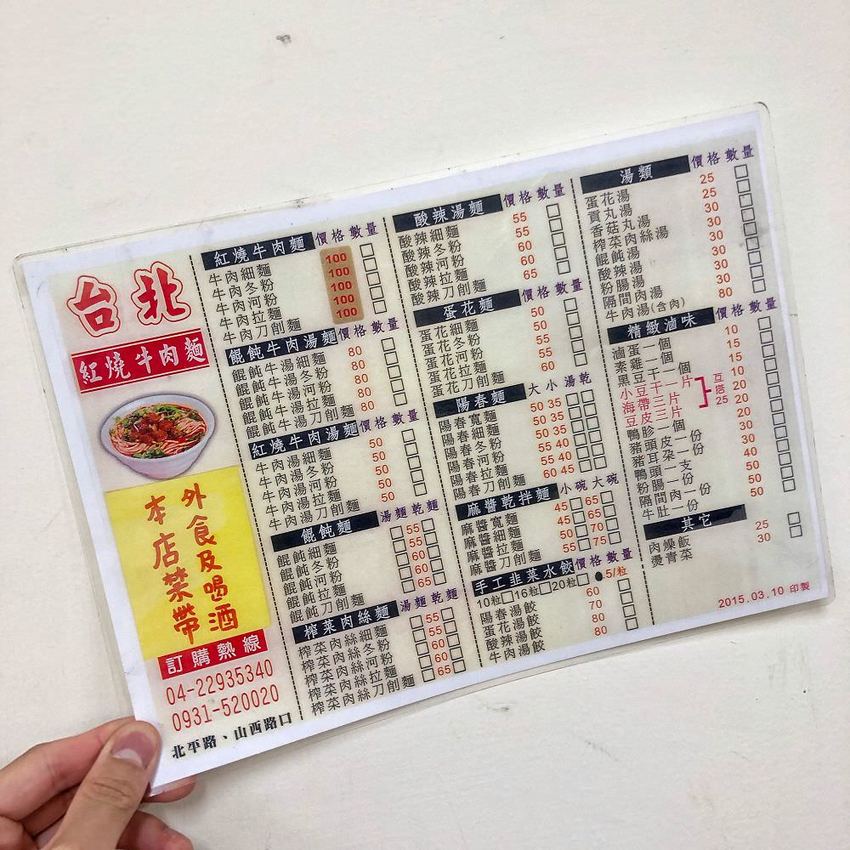 台北
紅燒牛肉麵
外食及喝酒
本店禁帶
訂購熱線
04-22935340
0931-520020
北平路、山西路口
紅燒牛肉麵 價格 數量
牛肉細麵 100
牛肉冬粉 100
牛肉河粉 100
牛肉拉麵 100
牛肉刀削麵 100
餛飩牛肉湯麵 價格 數量
餛飩牛湯細麵 80
餛飩牛湯冬粉 80
餛飩牛湯河粉 80
餛飩牛湯拉麵 80
餛飩牛湯刀削麵 80
紅燒牛肉湯麵 價格 數量
牛肉湯細麵 50
牛肉湯冬粉 50
牛肉湯河粉 50
牛肉湯拉麵 50
牛肉湯刀削麵 50
餛飩麵 湯麵 乾麵
餛飩細麵 55
餛飩冬粉 55
餛飩河粉 60
餛飩拉麵 60
餛飩刀削麵 65
榨菜肉絲麵 湯麵 乾麵
榨菜肉絲細麵 55
榨菜肉絲冬粉 55
榨菜肉絲河粉 60
榨菜肉絲拉麵 60
榨菜肉絲刀削麵 65
酸辣湯麵 價格 數量
酸辣細麵 55
酸辣冬粉 55
酸辣河粉 60
酸辣拉麵 60
酸辣刀削麵 65
蛋花麵 價格 數量
蛋花細麵 50
蛋花冬粉 50
蛋花河粉 55
蛋花拉麵 55
蛋花刀削麵 60
陽春麵 大 小 湯 乾
陽春寬麵 50 35
陽春細麵 50 35
陽春冬粉 50 35
陽春河粉 55 40
陽春拉麵 55 40
陽春刀削麵 60 45
麻醬乾拌麵 小碗 大碗
麻醬寬麵 45 65
麻醬細麵 45 65
麻醬拉麵 50 70
麻醬刀削麵 55 75
手工韭菜水餃 價格 數量
10粒 16粒 20粒 5/粒
陽春湯餃 60
蛋花湯餃 70
酸辣湯餃 80
牛肉湯餃 80
湯類 價格 數量
蛋花湯 25
貢丸湯 25
香菇丸湯 30
榨菜肉絲湯 30
餛飩湯 30
酸辣湯 30
粉腸湯 30
隔間肉湯 30
牛肉湯(含肉) 80
精緻滷味 價格 數量
滷蛋一個 10
素雞一個 15
黑豆干一個 15
小豆干一片 10
海帶三片 20
豆皮三片 20
互搭25
鴨胗一個 20
豬頭皮一份 30
豬耳朶一份 30
鴨頭一支 40
粉腸一份 50
隔間肉一份 50
牛肚一份 50
其它
肉燥飯 25
燙青菜 30
2015.03.10 印製